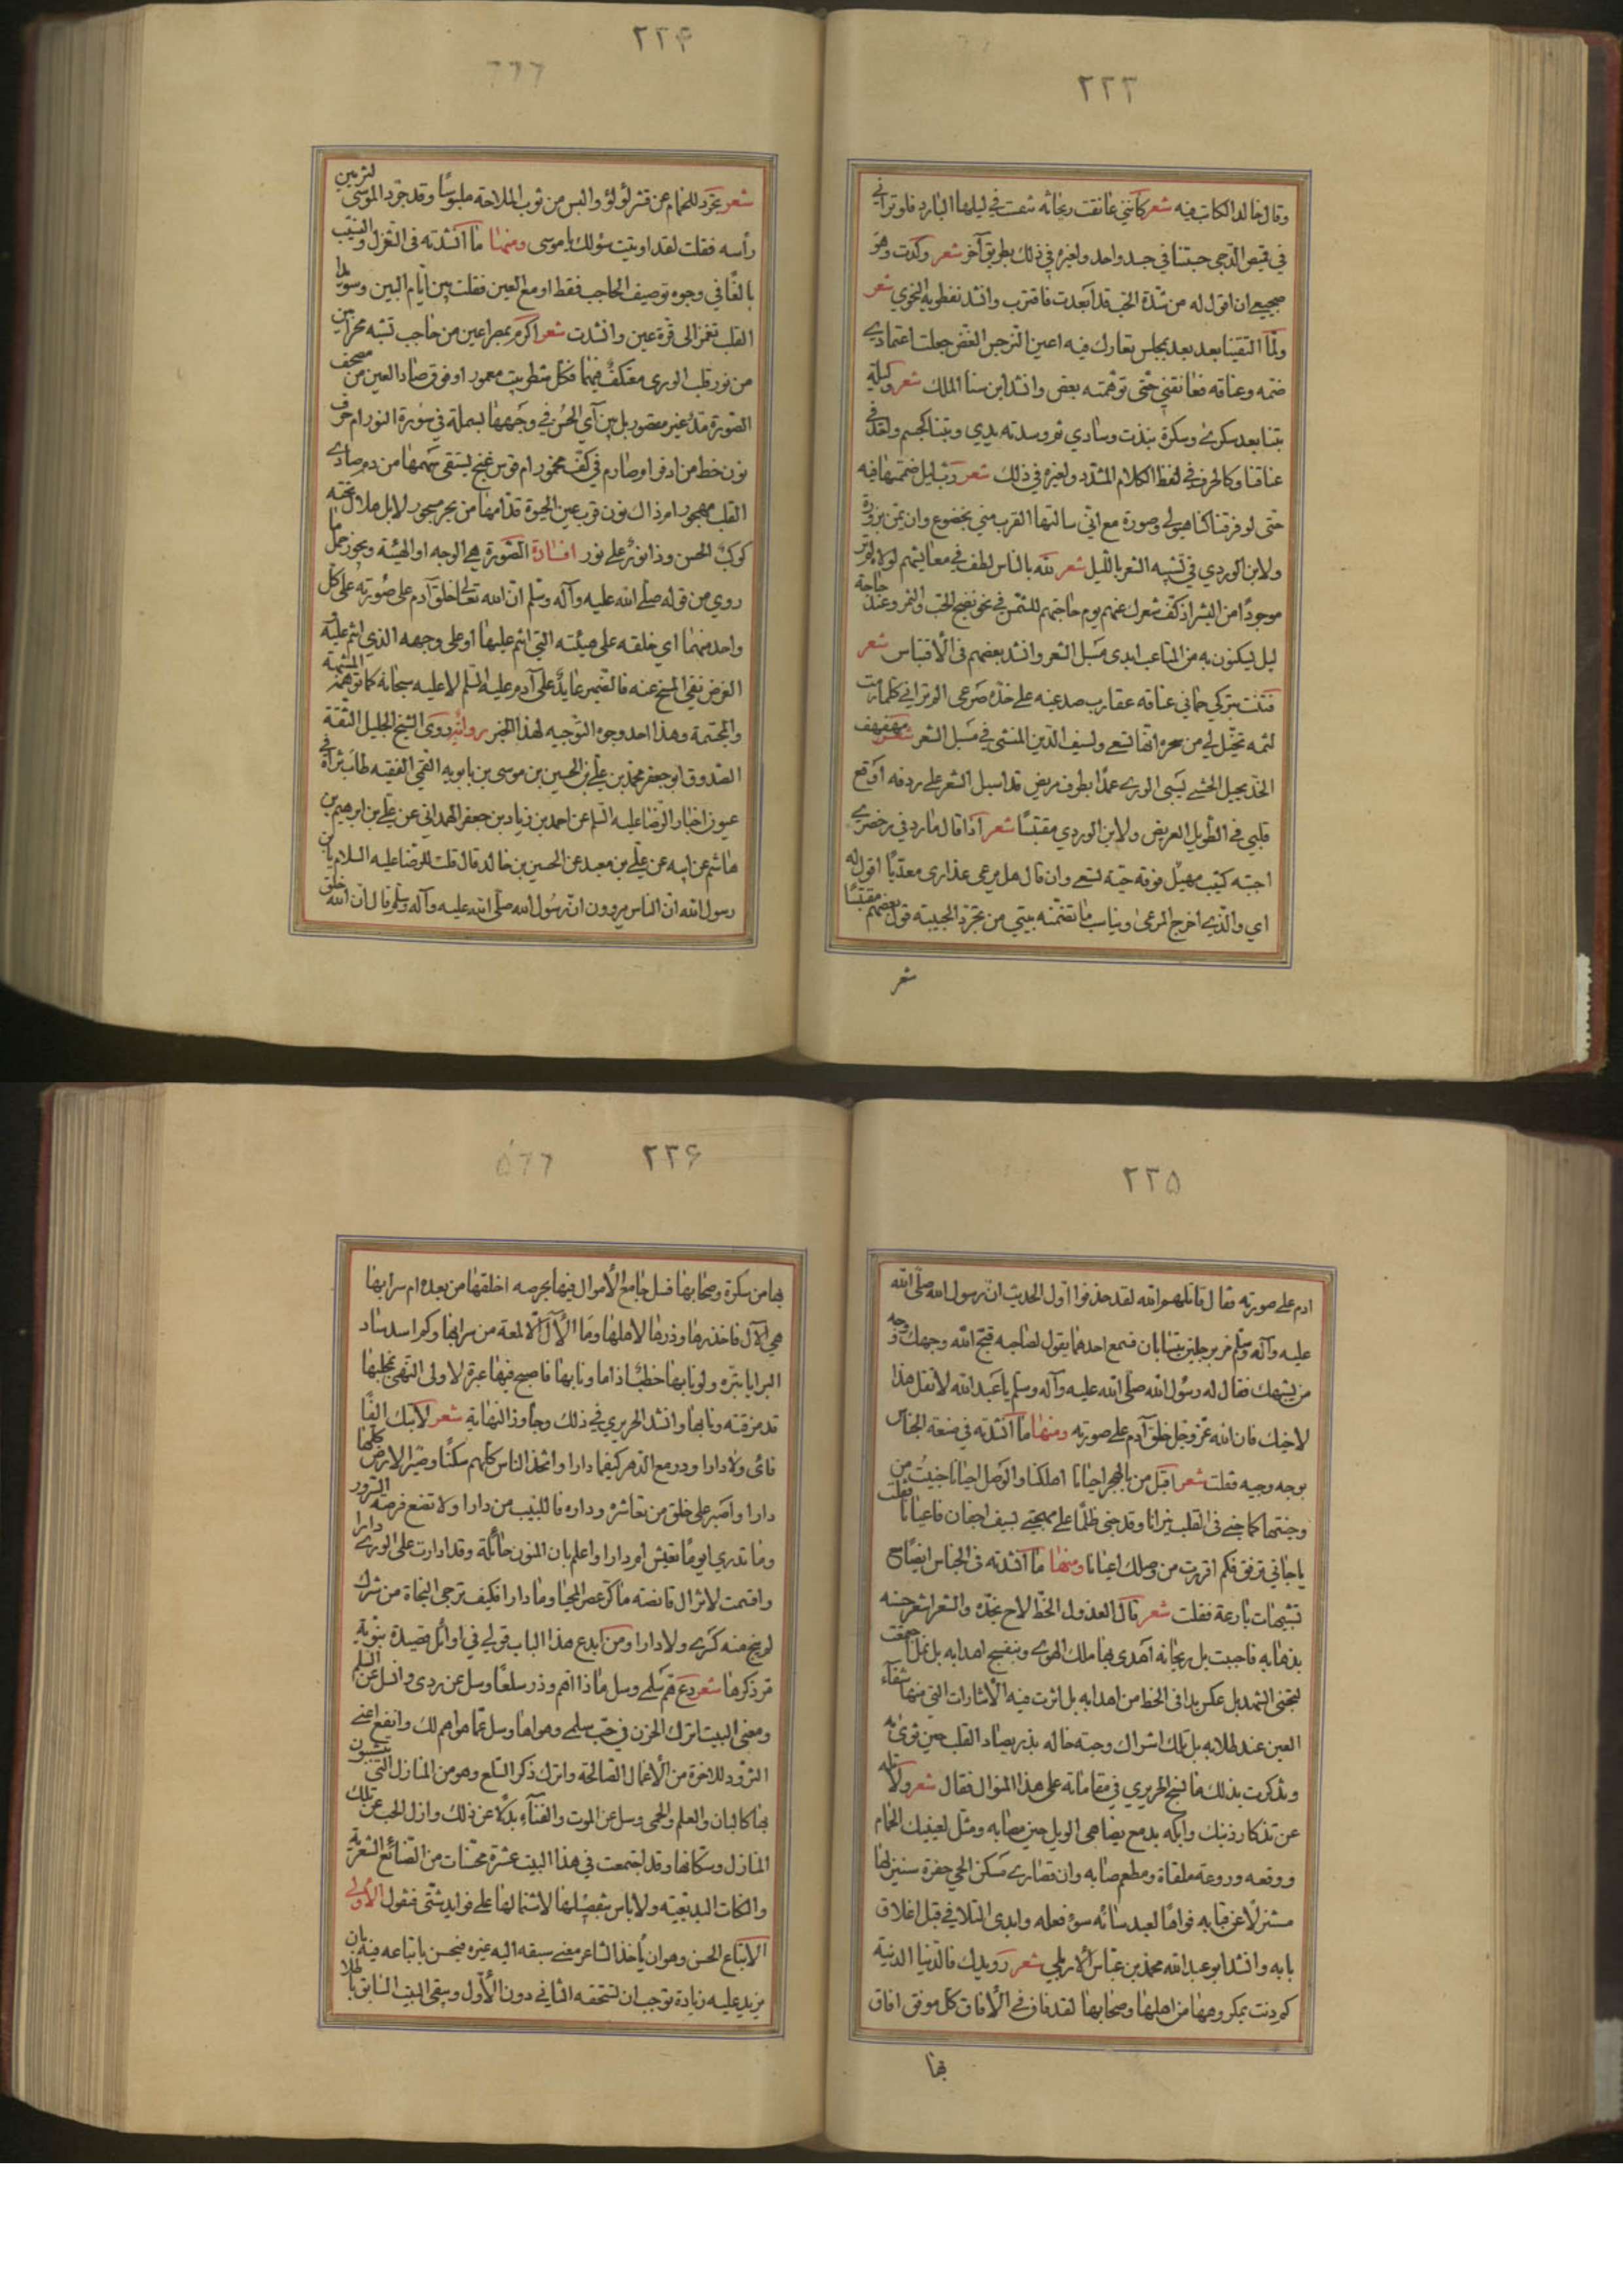 ٢٢٣
وقال خالد الكاتب فيه شعر كأنني عانقت ريحانة تنفست في ليلها البارد فلو تراني
في قميص الدجى حسبتنا في جسد واحد ولغيره في ذلك بطريق آخر شعر وكدت وهو
ضجيعي ان اقول له من شدة الحب قد أبعدت فاقترب وانشد نفطويه النحوي شعر
ولمّا التقينا بعد بعد بمجلس تغازلت فيه اعين النرجس الغض جعلت اعتمادي
ضمه وعناقه فعانقني حتى توهمته بعضي وانشد ابن سنا الملك شعر وليلة
بتنا بعد سكري وسكره نبذت وسادي ثم وسدته يدي وبتنا كجسم واحد في
عناقنا وكالحرف في لفظ الكلام المشدد ولغيره في ذلك شعر رب ليل ضممتها فيه
حتى لو فرقنا كنا هيولى وصورة مع اني سالتها القرب مني بخضوع وان تمن بزورة
ولابن الوردي في تشبيه الشعر بالليل شعر لله بالناس لطف في معايشهم لولاه لم تر
موجودًا من البشر اذ كف شعرك عنهم يوم حاجتهم للشمس في نحو نضج الحب والثمر وعند حاجة
ليل ليكنون به من المتاعب ابدى مسبل الشعر وانشد بعضهم في الأقتباس شعر
فتنت بتركي حماني عناقه عقارب صدغيه على خده صرعى الم تراني كلما رمت
لثمه تخيل لي من سحره انها تسعى ولسيف الدين المنشى في مسبل الشعر شعر مهفهف
الخد نحيل الحشى يسبي الورى عمدًا بطرف مريض قد اسبل الشعر على ردفه اوقع
قلبي في الطويل العريض ولابن الوردي مقتبسًا شعر اذا قال ما ردفي وخضري
اجبته كثيب مهيل فوقه حية تسعى وان قال هل مرعى عذارى معديًا اقول له
اي والذي اخرج المرعى ويناسب ما تضمنه بيتي من تجرد الحبيبة قول بعضهم مقتبسًا
شعر
٢٢۴
٦٦٦
شعر تجرد للحمام عن قشر لؤلؤ والبس من ثوب الملاحة ملبوسًا وقد جرد الموسى لتزيين
رأسه فقلت لقد اوتيت سؤلك يا موسى ومنها ما انشدته في الغزل والنسيب
بالغًا في وجوه توصيف الحاجب فقط او مع العين فقلت بين أيام البين وسويدا
القلب تغمز الى قرة عين وانشدت شعر اكرم بمصراعين من حاجب تشبه محرابين
من نور قلب الورى معتكف فيهما فكل شطر بيت معمور او فوق صاد العين من مصحف
الصورة مد غير مقصور بل بين آي الحسن في وجهها بسملة في سورة النور ام حرف
نون خط من ادفر او صارم في كف مخمور ام قوس غنج يستقي سهمها من دم صادي
القلب مهجور ام ذاك نون قرب عين الحيوة قد امها من بحر مسجور لا بل هلال تحته
كوكب الحسن وذا نور على نور افادة الصورة هي الوجه او الهيئة ويجوز حمل ما
روي من قوله صلى الله عليه وآله وسلم ان الله تعالى خلق آدم على صورته على كل
واحد منهما اي خلقه على هيئته التي انتم عليها او على وجهه الذي انتم عليه و
الغرض نفي المسخ عنه فالضمير عايد على آدم عليه السلم لا عليه سبحانه كما توهم المشبهة
والمجسمة وهذا احد وجوه التوجيه لهذا الخبر رواية روى الشيخ الجليل الثقة
الصدوق ابو جعفر محمد بن علي بن الحسين بن موسى بن بابويه القمي الفقيه طاب ثراه في
عيون اخبار الرضا عليه السلم عن احمد بن زياد بن جعفر الهمداني عن علي بن ابرهيم بن
هاشم عن ابيه عن علي بن معبد عن الحسين بن خالد قال قلت للرضا عليه السلام يابن
رسول الله ان الناس يروون ان رسول الله صلى الله عليه وآله وسلم قال ان الله خلق
٢٢۵
ادم على صورته فقال قاتلهم الله لقد حذفوا اول الحديث ان رسول الله صلى الله
عليه وآله وسلم مر برجلين يتسابان فسمع احدهما يقول لصاحبه قبح الله وجهك ووجه
من يشبهك فقال له رسول الله صلى الله عليه وآله وسلم يا عبد الله لا تقل هذا
لاخيك فان الله عز وجل خلق آدم على صورته ومنها ما انشدته في صنعة الجناس
بوجه وجيه فقلت شعر اقبل من بالهجر احيانا اهلكنا والوصل احيانا جنيت من
وجنتها كما جنى في القلب نيرانا وقد جنى ظلمًا على مهجتي بسيف اجفان فاعيانا فقلت
يا جاني ترفق فكم اقررت من وصلك اعيانا ومنها ما انشدته في الجناس ايضًا مع
تشبيهات بارعة فقلت شعر قال العذول الخط لاح بخده والشعر اشعر حسنه
بذهابه فاجبت بل ريحانة اهدى بها ملك الهوى وبنفسج اهدى به بل نمل جمعت
لتجني الشهد بل عكس بدا في الخط من اهدابه بل اثرت فيه الأشارات التي منها شفاء
العين عند طلابه بل تلك اشراك وحبة خاله بذر يصاد القلب حين ثوى به
وتذكرت بذلك ما نسج الحريري في مقاماته على هذا المنوال فقال شعر ولا تله
عن تذكار ذنبك وابكه بدمع يضاهي الوبل حين مصابه ومثل لعينيك الحمام
ووقعه وروعة ملقاه ومطعم صابه وان قصارى مسكن الحي حفرة سينزلها
مستنزلًا عن قبابه فواها لعبد ساءه سوء فعله وابدى التلافي قبل اغلاق
بابه وانشد ابو عبد الله محمد بن عباس الأربلي شعر رويدك فالدنيا الدنية
كم دنت بمكروهها من اهلها وصحابها لقد فاق في الأفاق كل موفق افاق
بها
٢٢۶
۵٦٦
بها من سكرة وصحا بها فسل جامع الأموال فيها بحرصه اخلفها من بعده ام سرى بها
هي الآل فاحذرها وذرها لاهلها وما الآل الّا لمعة من سرابها وكم اسد ساد
البرايا ببره ولو نابها خطب اذا ما ونى بها فاصبح فيها عبرة لاولى النهى بمخلبها
قد مزقته ونابها وانشد الحريري في ذلك وجاوز النهاية شعر لا تبك الفًا
نائ ولا دارا ودر مع الدهر كيفما دارا واتخذ الناس كلهم سكنًا وصير الارض كلها
دارا واصبر على خلق من تعاشره وداره فاللبيب من دارا ولا تضع فرصة السرور
وما تدري ايومًا تعيش ام دارا واعلم بان المنون جائلة وقد ادارت على الورى دارا
واقسمت لا تزال قانصة ما كر عصر المحيا وما دارا فكيف ترجى النجاة من شرك
لم ينج منه كسرى ولا دارا ومن ابدع هذا الباب قولي في اوائل قصيدة نبوية
مر ذكرها شعر دع هم سلمى وسل ماذا اهم وذر سلعًا وسل عن ردى وانسل عن السلم
ومعنى البيت اترك الحزن في حب سلمى وهواها وسل عما هو اهم لك وانفع اعني
التزود للاخرة من الأعمال الصالحة واترك ذكر السلع وهو من المنازل التي يتشببون
بها كالبان والعلم والحمى وسل عن الموت والفناء بدلًا عن ذلك وازل الحب عن تلك
المنازل وسكانها وقد اجتمعت في هذا البيت عشرة محسنات من الصنائع الشعرية
والنكات البديعية ولا باس بتفصيلها لاشتمالها على فوايد شتى فنقول الأولى
الأتباع الحسن وهو ان يأخذ الشاعر معنى سبقه اليه غيره فيحسن باتباعه فيه بان
يزيد عليه زيادة توجب ان تستحقه الثاني دون الأول ويبقى البيت السابق باطلا